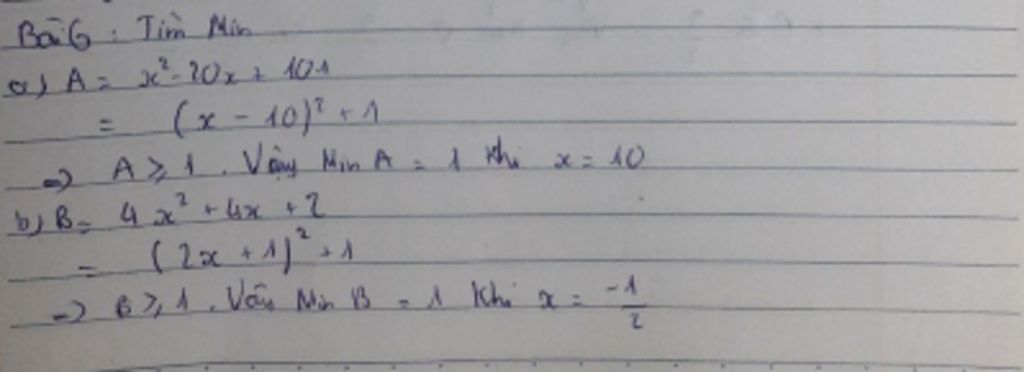 Bài 6 : Tìm Min
a) A = x² - 20x + 101
= (x - 10)² + 1
=> A ≥ 1 . Vậy Min A = 1 khi x = 10
b) B = 4x² + 4x + 2
= (2x + 1)² + 1
=> B ≥ 1 . Vậy Min B = 1 khi x = -1/2